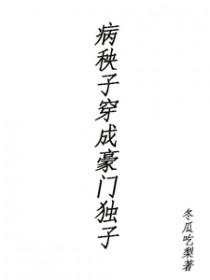 病秧子穿成豪门独子
冬瓜吃梨著